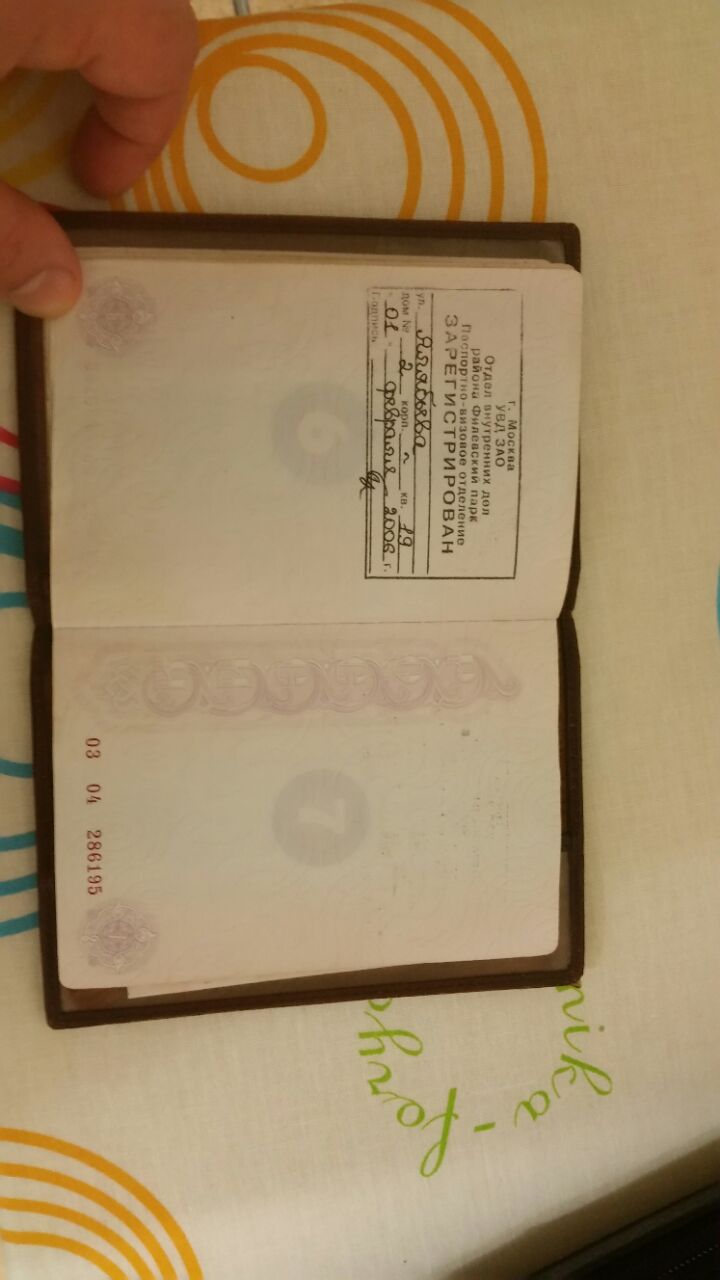 г. Москва
УВД ЗАО
Отдел внутренних дел
района Филевский парк
Паспортно-визовое отделение
ЗАРЕГИСТРИРОВАН
ул. Алябьева
дом № 2 корп. ~ кв. 19
01 февраля 2006 г.
Подпись
6
7
03 04 286195
nika-